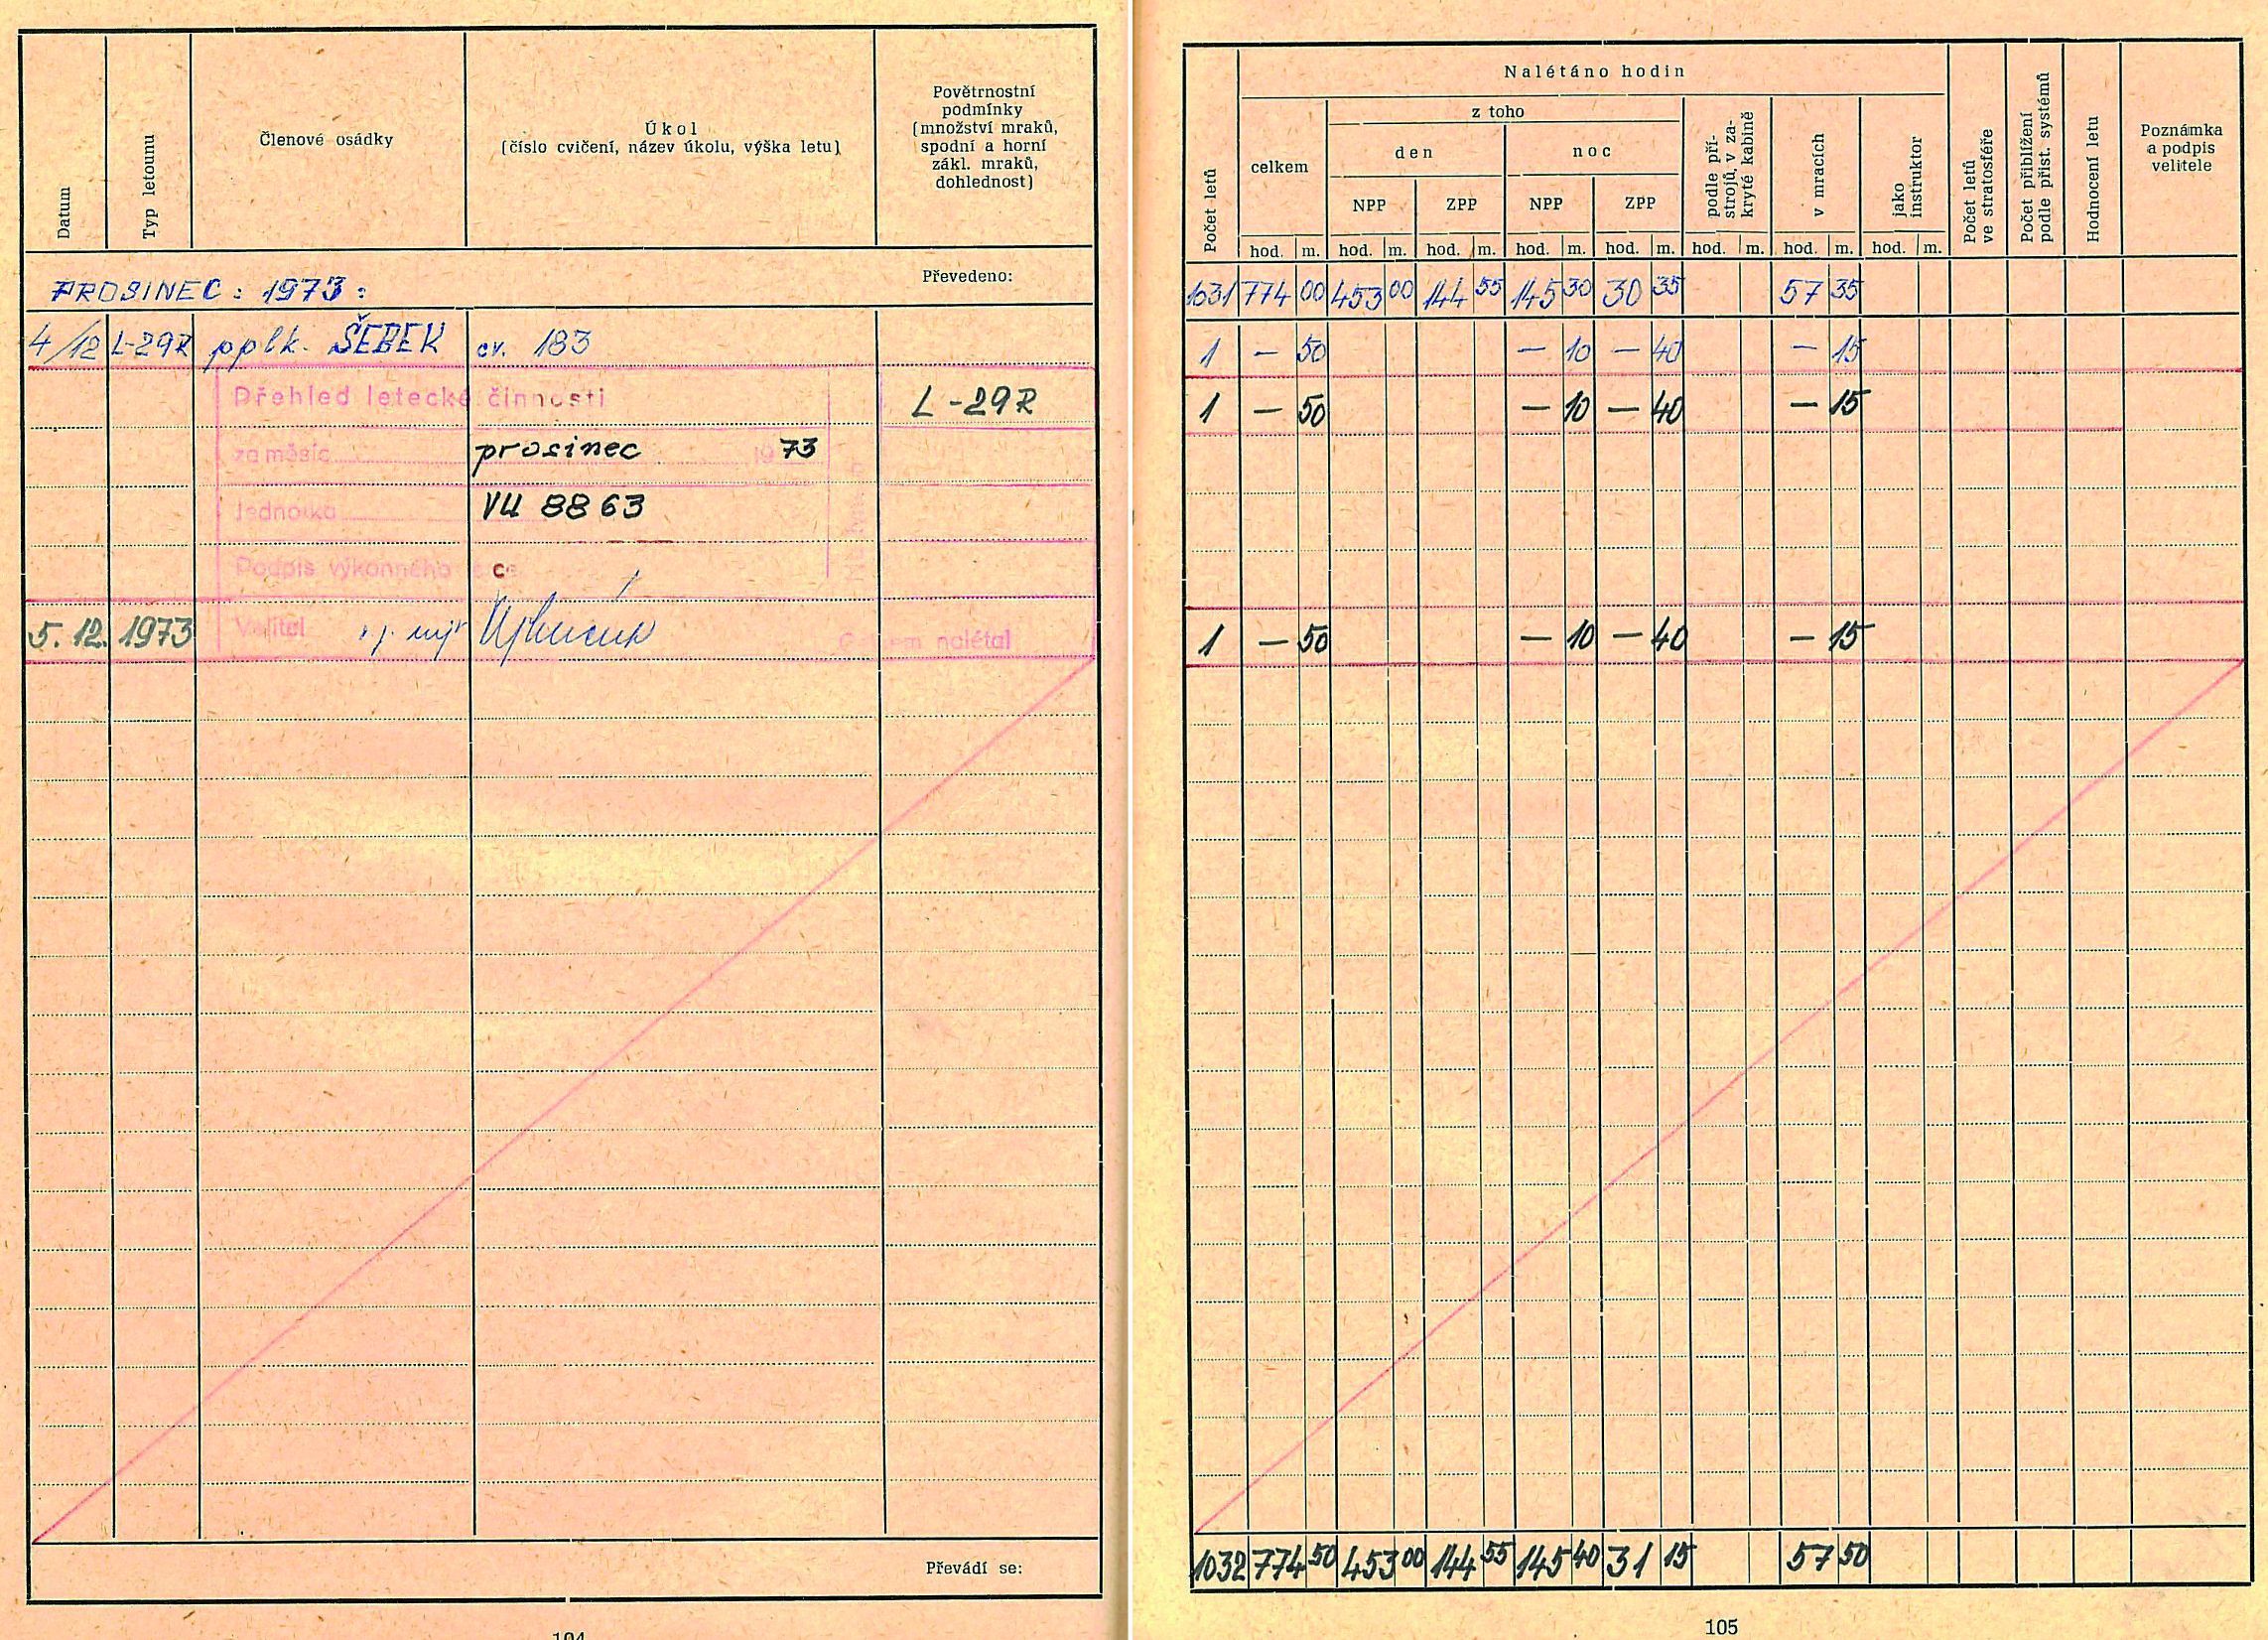 Datum
Typ letounu
Členové osádky
Úkol
(číslo cvičení, název úkolu, výška letu)
Povětrnostní
podmínky
(množství mraků,
spodní a horní
zákl. mraků,
dohlednost)
PROSINEC : 1973 :
Převedeno:
4/12 L-29R pplk. ŠEBEK cv. 183
Přehled letecké činnosti L-29R
za měsíc prosinec 1973
Jednotka VÚ 8863
Podpis výkonného
5. 12. 1973 Velitel
Celkem nalétal
Převádí se:
104
Počet letů
Nalétáno hodin
celkem
z toho
den
noc
NPP ZPP NPP ZPP
podle pří-
strojů, v za-
kryté kabině
v mracích
jako
instruktor
Počet letů
ve stratosféře
Počet přiblížení
podle přist. systémů
Hodnocení letu
Poznámka
a podpis
velitele
hod. m. hod. m. hod. m. hod. m. hod. m. hod. m. hod. m. hod. m.
1031 774 00 453 00 144 55 145 30 30 35 57 35
1 — 50 — 10 — 40 — 15
1 — 50 — 10 — 40 — 15
1 — 50 — 10 — 40 — 15
1032 774 50 453 00 144 55 145 40 31 15 57 50
105